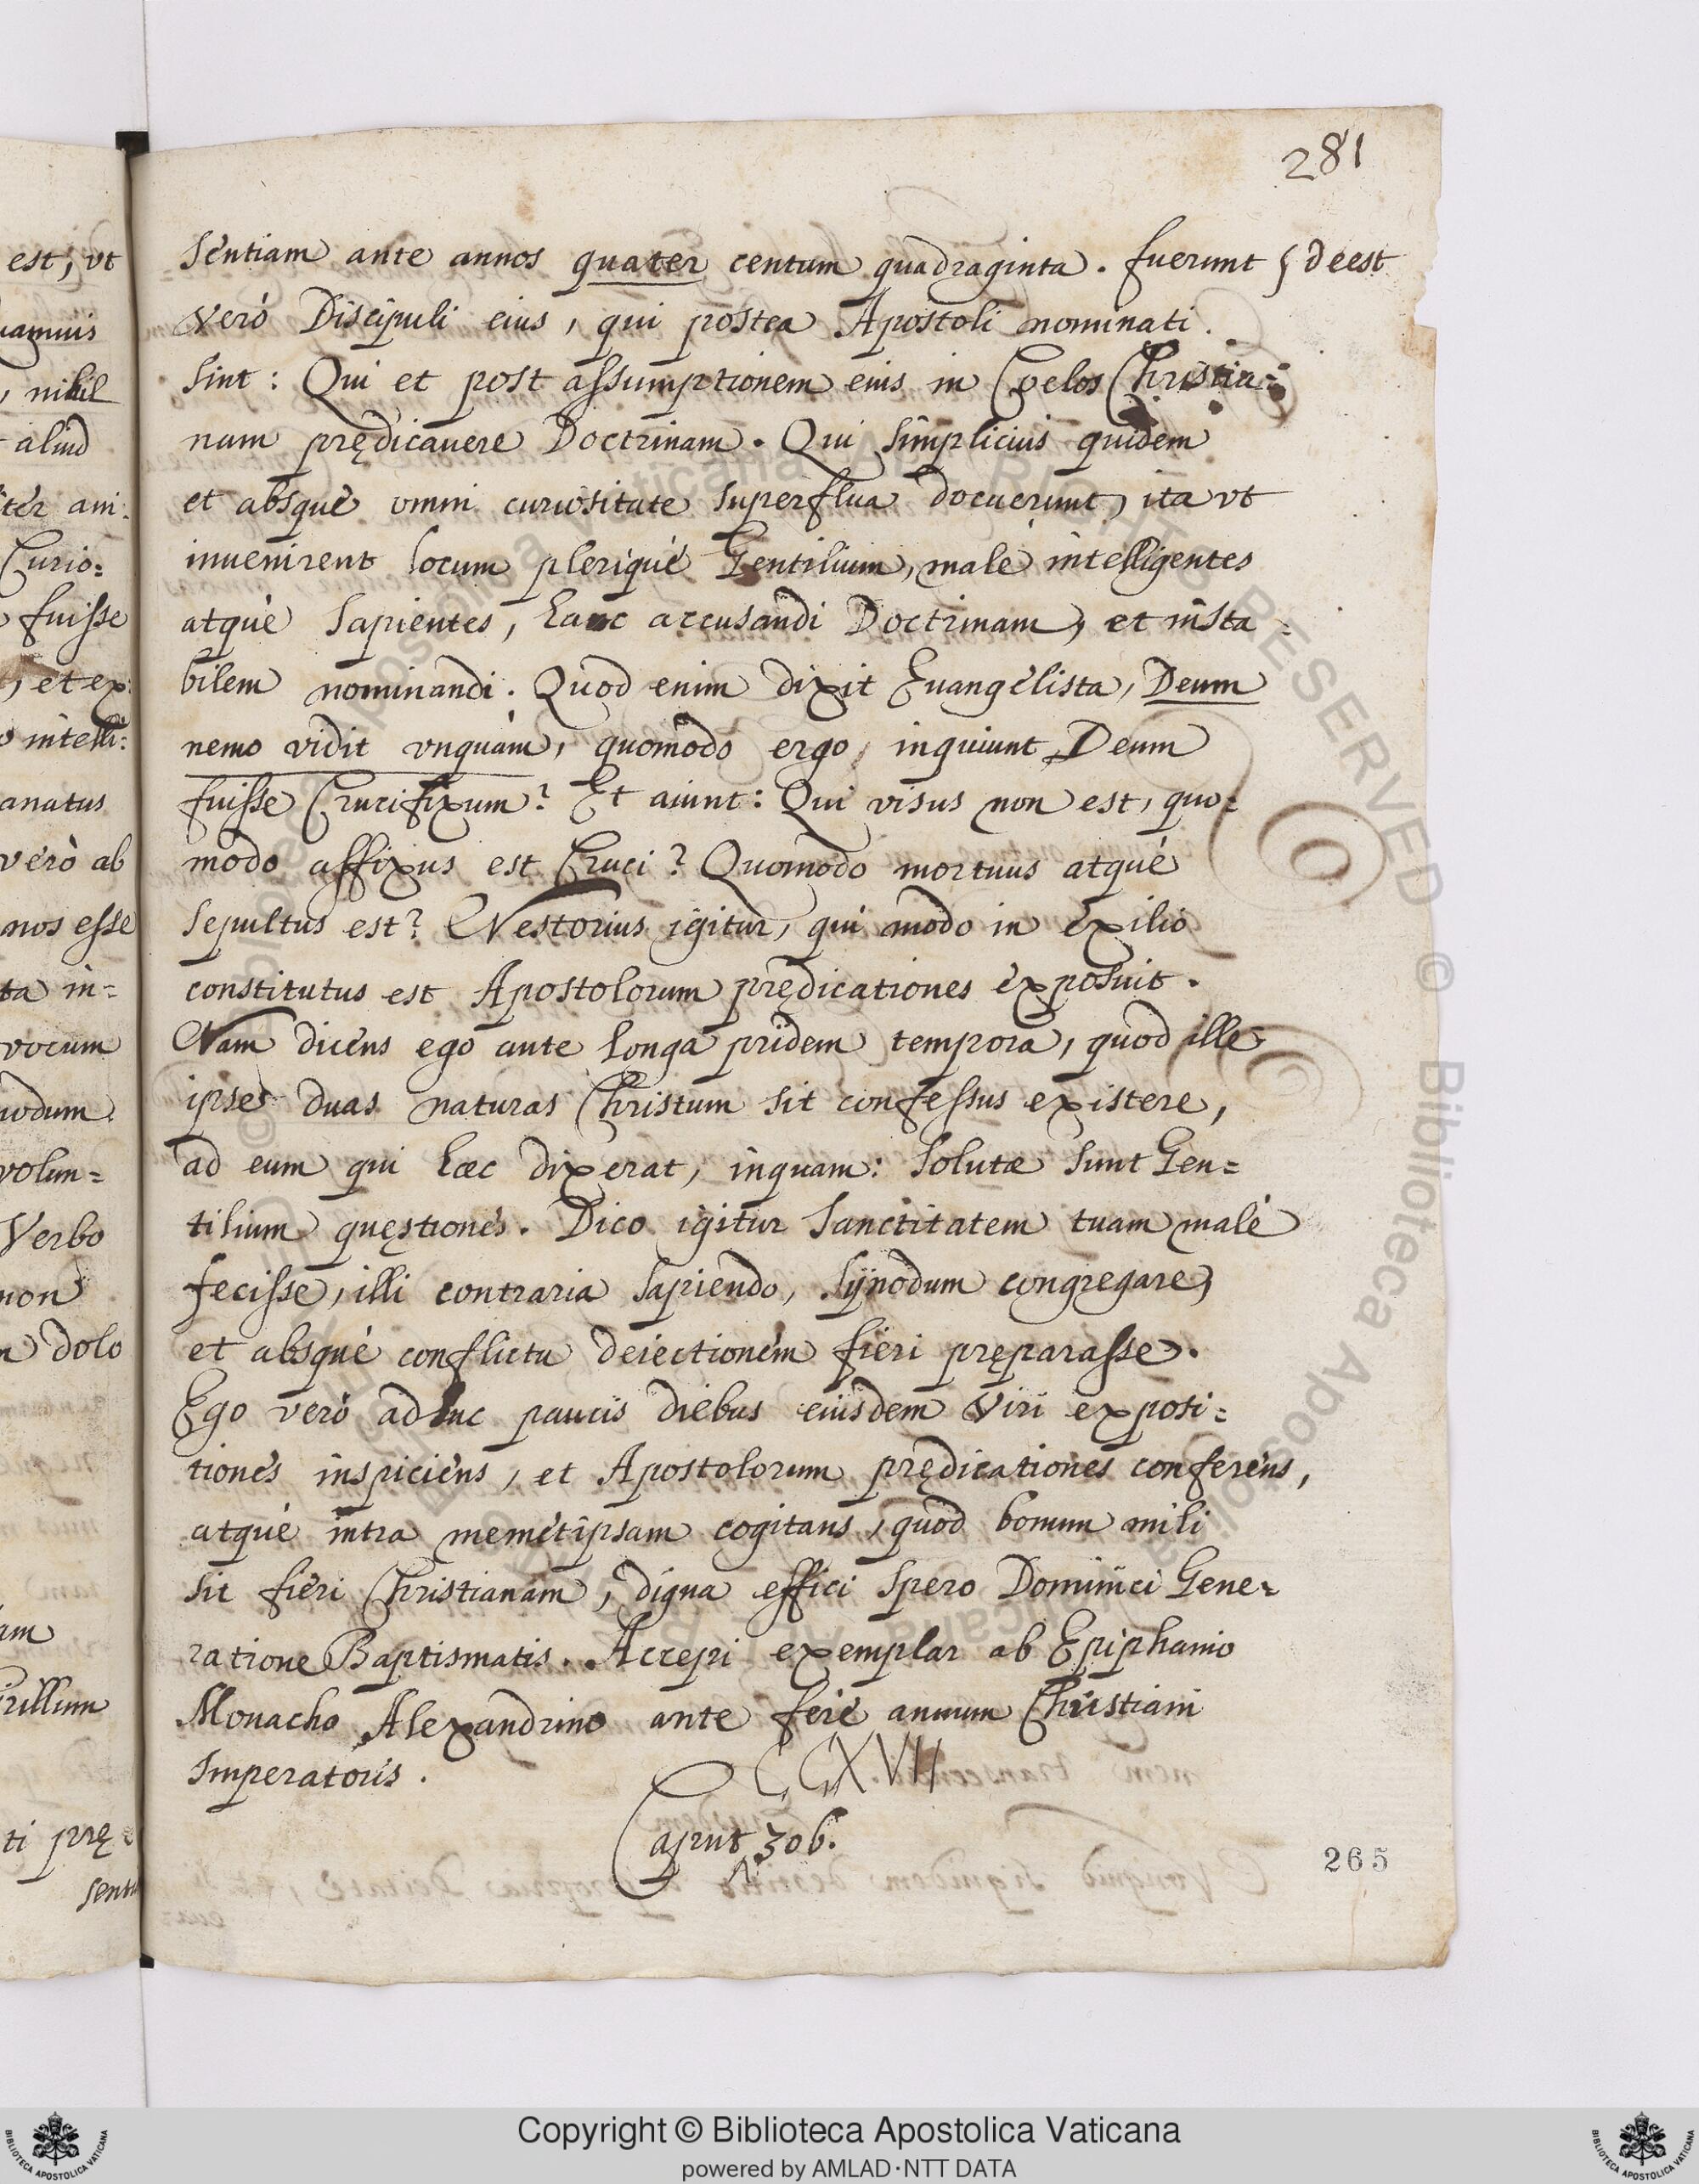 281
sentiam ante annos quater centum quadraginta. fuerunt { deest
verò Discipuli eius, qui postea Apostoli nominati
sint: Qui et post assumptionem eius in Coelos Christia=
nam prędicauere Doctrinam. Qui simplicius quidem
et absque omni curiositate superflua docuerunt, ita vt
inuenirent locum pleriquè Gentilium, male intelligentes
atquè sapientes, hanc accusandi Doctrinam, et insta=
bilem nominandi. Quod enim dixit Euangelista, Deum
nemo vidit vnquàm, quomodo ergo, inquiunt, Deum
fuisse Crucifixum? Et aiunt: Qui visus non est, quo=
modo affixus est Cruci? Quomodo mortuus atquè
sepultus est? Nestorius igitur, qui modo in exilio
constitutus est Apostolorum prędicationes exposuit.
Nam dicens ego ante longa pridem tempora, quod ille
ipse duas naturas Christum sit confessus existere,
ad eum qui hæc dixerat, inquam: Solutæ sunt Gen=
tilium quęstiones. Dico igitur Sanctitatem tuam malè
fecisse, illi contraria sapiendo, Synodum congregare,
et absquè conflictu deiectionem fieri pręparasse.
Ego verò adhuc paucis diebus eiusdem Viri exposi=
tiones inspiciens, et Apostolorum prędicationes conferens,
atquè intra memetipsam cogitans, quod bonum mihi
sit fieri Christianam, digna effici spero Dominici Gene=
ratione Baptismatis. Accepi exemplar ab Epiphanio
Monacho Alexandrino ante ferè annum Christiani
Imperatoris.
CCXVII
Caput 306.
265
est, vt
uamuis
, nihil
aliud
ter ani:
Curio=
fuisse
, et ex:
intelli:
anatus
verò ab
nos esse
ta in=
vocum
odum
volun=
Verbo
non
dolo
um
irillum
ti prę=
senti
© Biblioteca Apostolica Vaticana
Copyright © Biblioteca Apostolica Vaticana
powered by AMLAD·NTT DATA
BIBLIOTECA APOSTOLICA VATICANA
BIBLIOTECA APOSTOLICA VATICANA